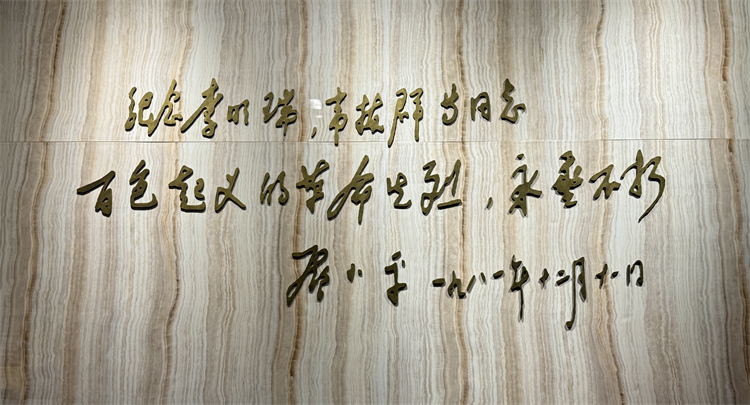 纪念李明瑞，韦拔群等同志
百色起义的革命先烈，永垂不朽
邓小平 一九八一年十二月十一日